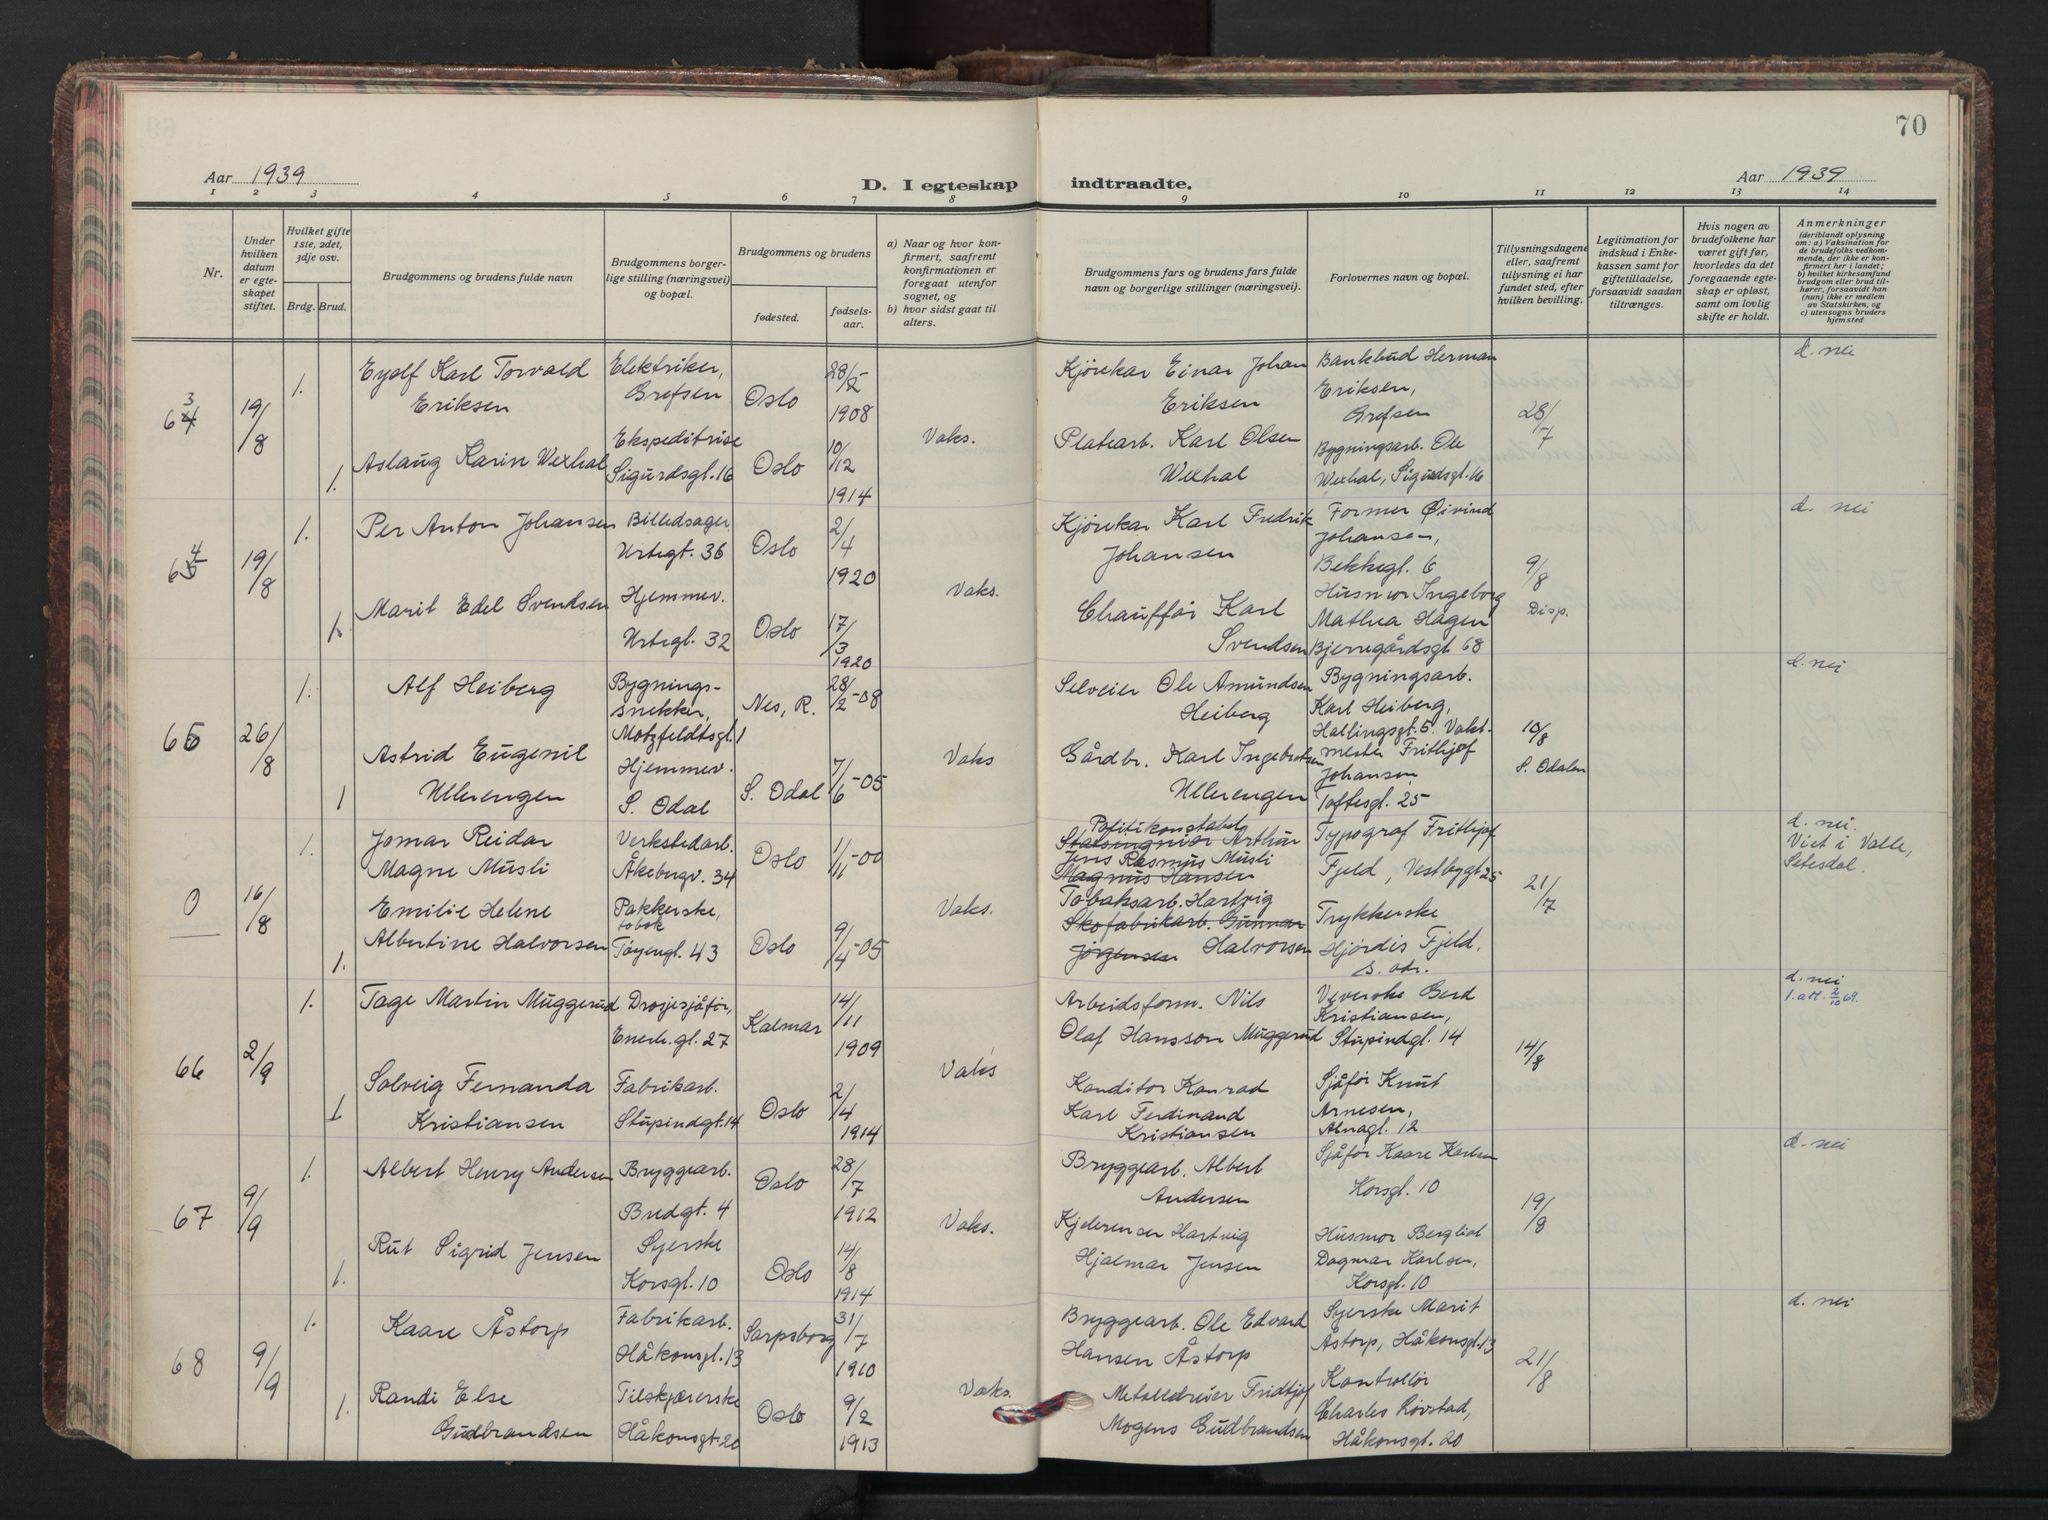 70
Aar 1939
D. I egteskap indtraadte.
Aar 1939
1 2 3 4 5 6 7 8 9 10 11 12 13 14
Nr.
Under hvilken datum er egteskapet stiftet.
Hvilket gifte 1ste, 2det, 3dje osv.
Brdg. Brud.
Brudgommens og brudens fulde navn
Brudgommens borgerlige stilling (næringsvei) og bopæl.
Brudgommens og brudens
fødested.
fødselsaar.
a) Naar og hvor konfirmert, saafremt konfirmationen er foregaaet utenfor sognet, og
b) hvor sidst gaat til alters.
Brudgommens fars og brudens fars fulde navn og borgerlige stillinger (næringsvei).
Forlovernes navn og bopæl.
Tillysningsdagene eller, saafremt tillysning ei har fundet sted, efter hvilken bevilling.
Legitimation for indskud i Enkekassen samt for giftetilladelse, forsaavidt saadan tiltrænges.
Hvis nogen av brudefolkene har været gift før, hvorledes da det foregaaende egteskap er opløst, samt om lovlig skifte er holdt.
Anmerkninger
(deriblandt oplysning om: a) Vaksination for de brudefolks vedkommende, der ikke er konfirmert her i landet; b) hvilket kirkesamfund brudgom eller brud tilhører, forsaavidt han (hun) ikke er medlem av Statskirken, og c) utensogns bruders hjemsted
63 19/8 1. Eyolf Karl Torvald Eriksen Elektriker, Grefsen Oslo 28/2 1908 Kjørekar Einar Johan Eriksen Bankbud Herman Eriksen, Grefsen 28/7 d. nei
1. Aslaug Karin Wexhal Ekspeditrise Sigurdsgt. 16 Oslo 10/12 1914 Vaks. Platearb. Karl Olsen Wexhal Bygningsarb. Ole Wexhal, Sigurdsgt. 16
64 19/8 1. Per Anton Johansen Billedsager Urtegt. 36 Oslo 2/4 1920 Kjørekar Karl Fredrik Johansen Former Øivind Johansen, Bekkegt. 6 9/8 Disp. d. nei
1. Marit Edel Svendsen Hjemmev. Urtegt. 32 Oslo 17/3 1920 Vaks. Chauffør Karl Svendsen Husmor Ingeborg Mathea Hagen Bjerregårdsgt 68
65 26/8 1. Alf Heiberg Bygnings-snekker, Motzfeldtsgt. 1 Nes, R. 28/2-08 Selveier Ole Amundsen Heiberg Bygningsarb. Karl Heiberg, Hallingsgt. 5. 10/8 S. Odalen d. nei
1 Astrid Eugenie Ullerengen Hjemmev. S. Odal S. Odal 7/6-05 Vaks Gårdbr. Karl Ingebretsen Ullerengen Vaktmester Frithjof Johansen Toftesgt. 25
0 16/8 1. Jomar Reidar Magne Musli Verkstedarb. Åkebergv. 34 Oslo 1/11-00 Politikonstabel Arthur Jens Rasmus Musli Magnus Hansen Typograf Frithjof Fjeld, Vestbygt 25 21/7 d. nei. Viet i Valle, Setesdal.
1. Emilie Helene Albertine Halvorsen Pakkerske, tobak Tøyengt. 43 Oslo 9/4-05 Vaks. Tobaksarb. Hartvig Skofabrikarb. Gunnar Jørgensen Halvorsen Trykkerske Hjørdis Fjeld, s. adr.
66 2/9 1. Tage Martin Muggerud Drosjesjåfør, Enerh.gt. 27 Kalmar 14/11 1909 Arbeidsform. Nils Olaf Hansson Muggerud Veverske Gerd Kristiansen, Stupindgt. 14 14/8 d. nei 1. att. 2/10 69.
1 Solveig Fernanda Kristiansen Fabrikarb. Stupindgt. 14 Oslo 2/4 1914 Vaks Konditor Konrad Karl Ferdinand Kristiansen Sjåfør Knut Arnesen, Alnagt. 12
67 9/9 1. Albert Henry Andersen Bryggearb. Bredgt. 4 Oslo 28/7 1912 Bryggearb. Albert Andersen Sjåfør Kaare Karlsen Korsgt. 10 19/8 d. nei
1. Rut Sigrid Jensen Syerske Korsgt. 10 Oslo 14/8 1914 Vaks. Kjelerenser Hartvig Hjalmar Jensen Husmor Bergliot Dagmar Karlsen, Korsgt. 10
68 9/9 1. Kaare Åstorp Fabrikarb. Håkonsgt. 13 Sarpsborg 31/7 1910 Bryggearb. Ole Edvard Hansen Åstorp Syerske Marit Åstorp, Håkonsgt. 13 21/8 d. nei
1. Randi Else Gudbrandsen Tilskjærerske Håkonsgt. 20 Oslo 9/2 1913 Vaks. Metalldreier Fridtjof Mogens Gudbrandsen Kontrollør Charles Løvstad, Håkonsgt. 20